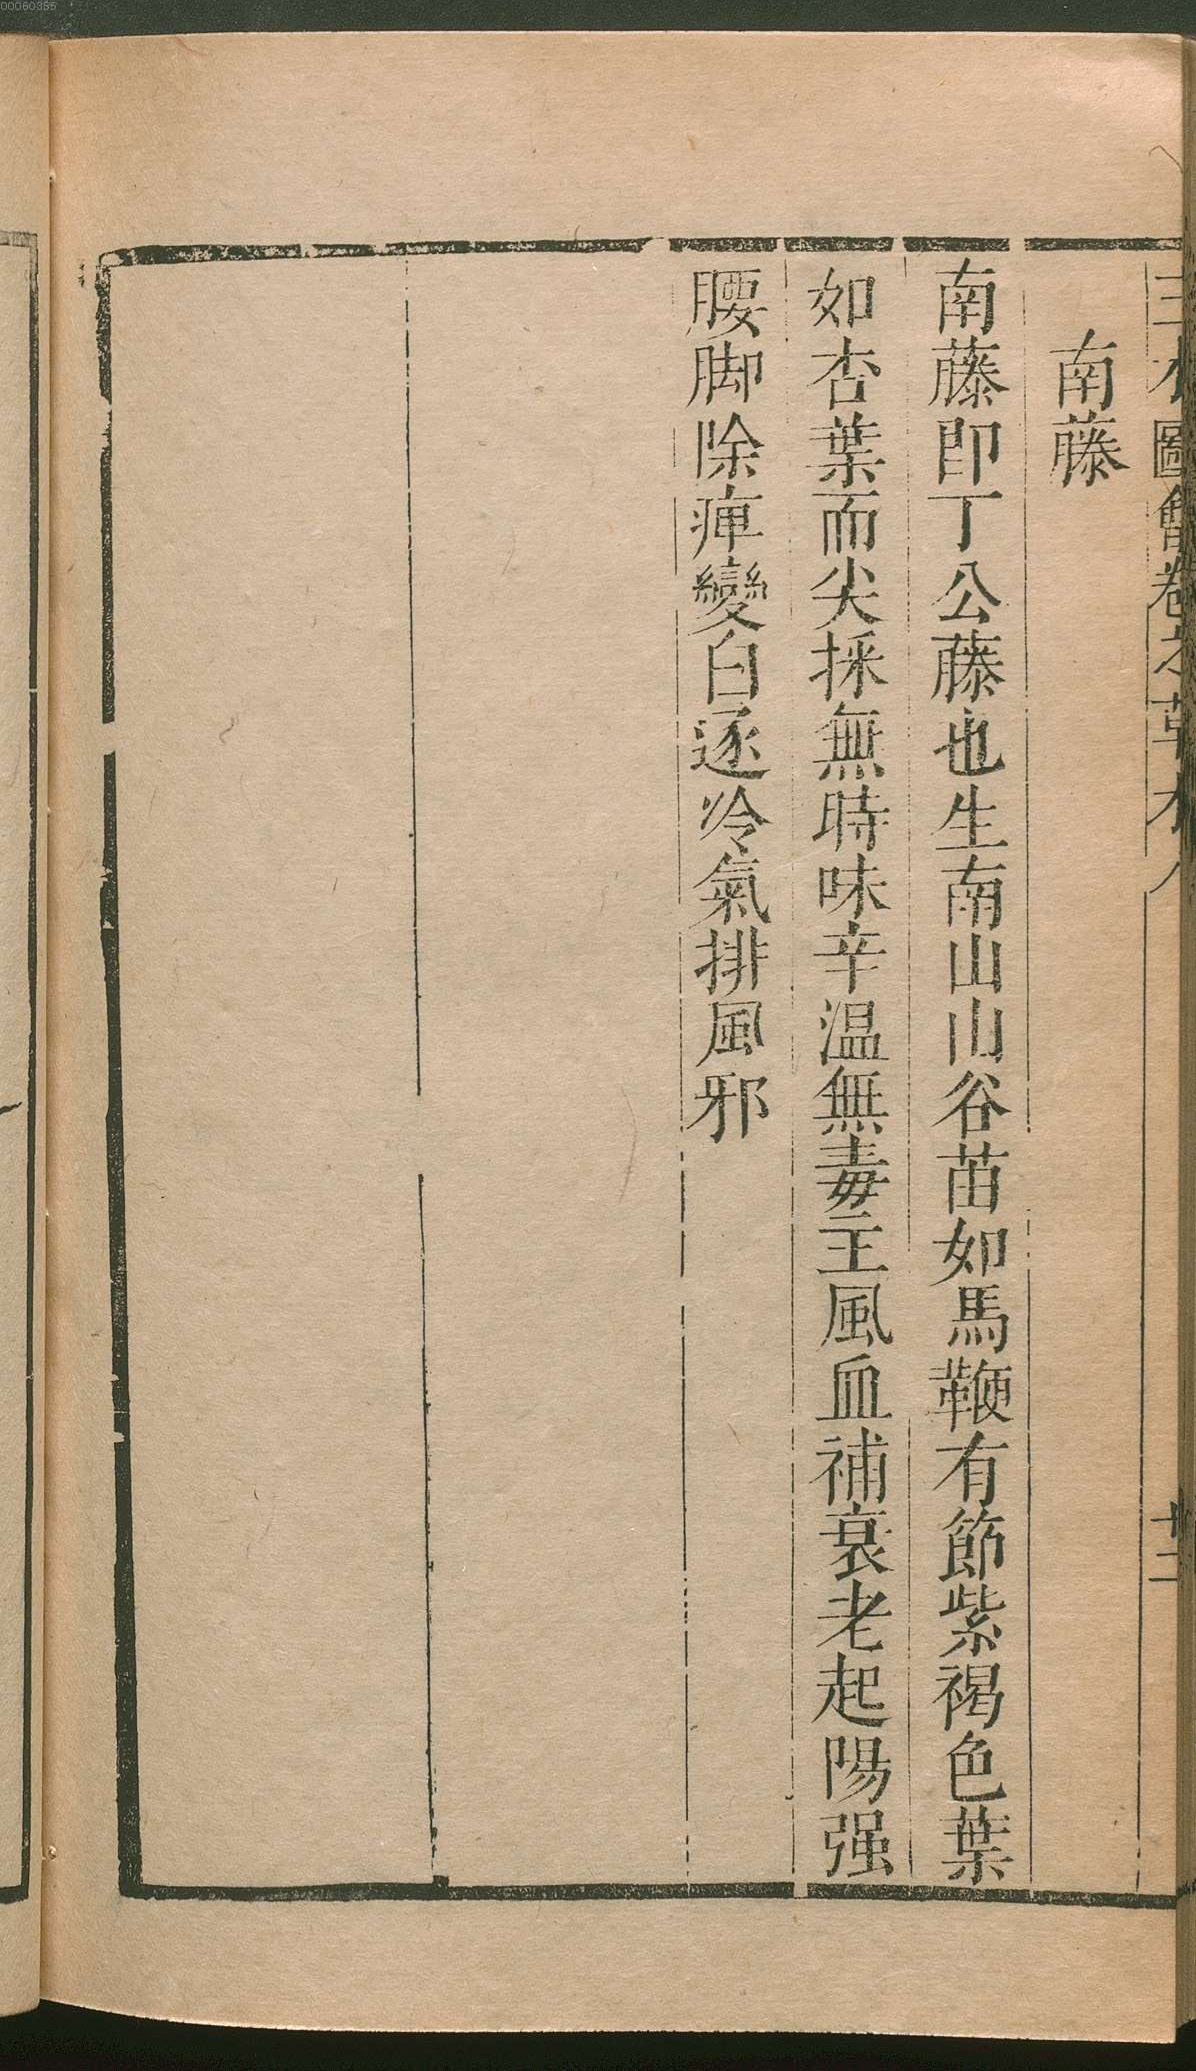 00060355
三才圖會卷之草木八
十二
南藤
南藤即丁公藤也生南山山谷苗如馬鞭有節紫褐色葉
如杏葉而尖採無時味辛温無毒主風血補衰老起陽强
腰脚除痺變白逐冷氣排風邪